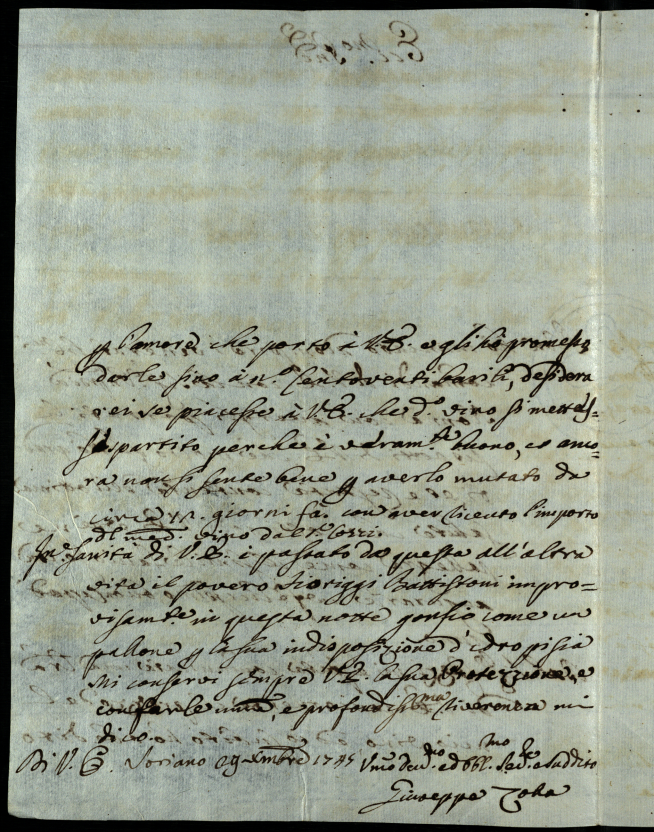 p l'amore che porto à V.E. e gli hò promesso
darle sino à n.º Centoventi barili, desidera
rei se piacesse à V.E. che d.º vino si mettes=
se spartito perche è veram.te buono, et anco=
ra non si sente bene p averlo mutato da
circa giorni fà con aver ricevuto l'importo
del med.º vino dal Sr
In Sanità di V.E. è passato da questa all'altra
vita il povero Battistoni impro=
visam.te in questa notte gonfio come un
pallone p la sua indisposizione d'idropisia
Mi conservi sempre V.E. la sua Protezzione, e
con farle e profondiss.ma riverenza mi
dico
Di V.E. Soriano 29 Xmbre 1745 Vmo Dev.mo ed Obbl.mo Se.re e Suddito
Giuseppe